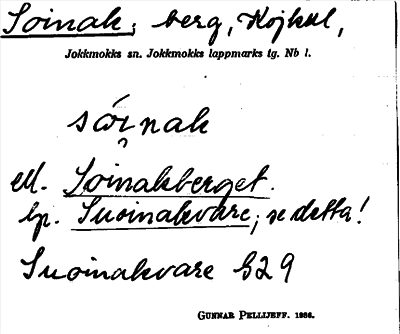 Soinak; berg, Kojkul,
Jokkmokks sn. Jokkmokks lappmarks tg. Nb l.
sóinak
ell. Soinakberget.
lp. Suoinakvare; se detta!
Suoinakvare B29
GUNNAR PELLIJEFF. 1986.